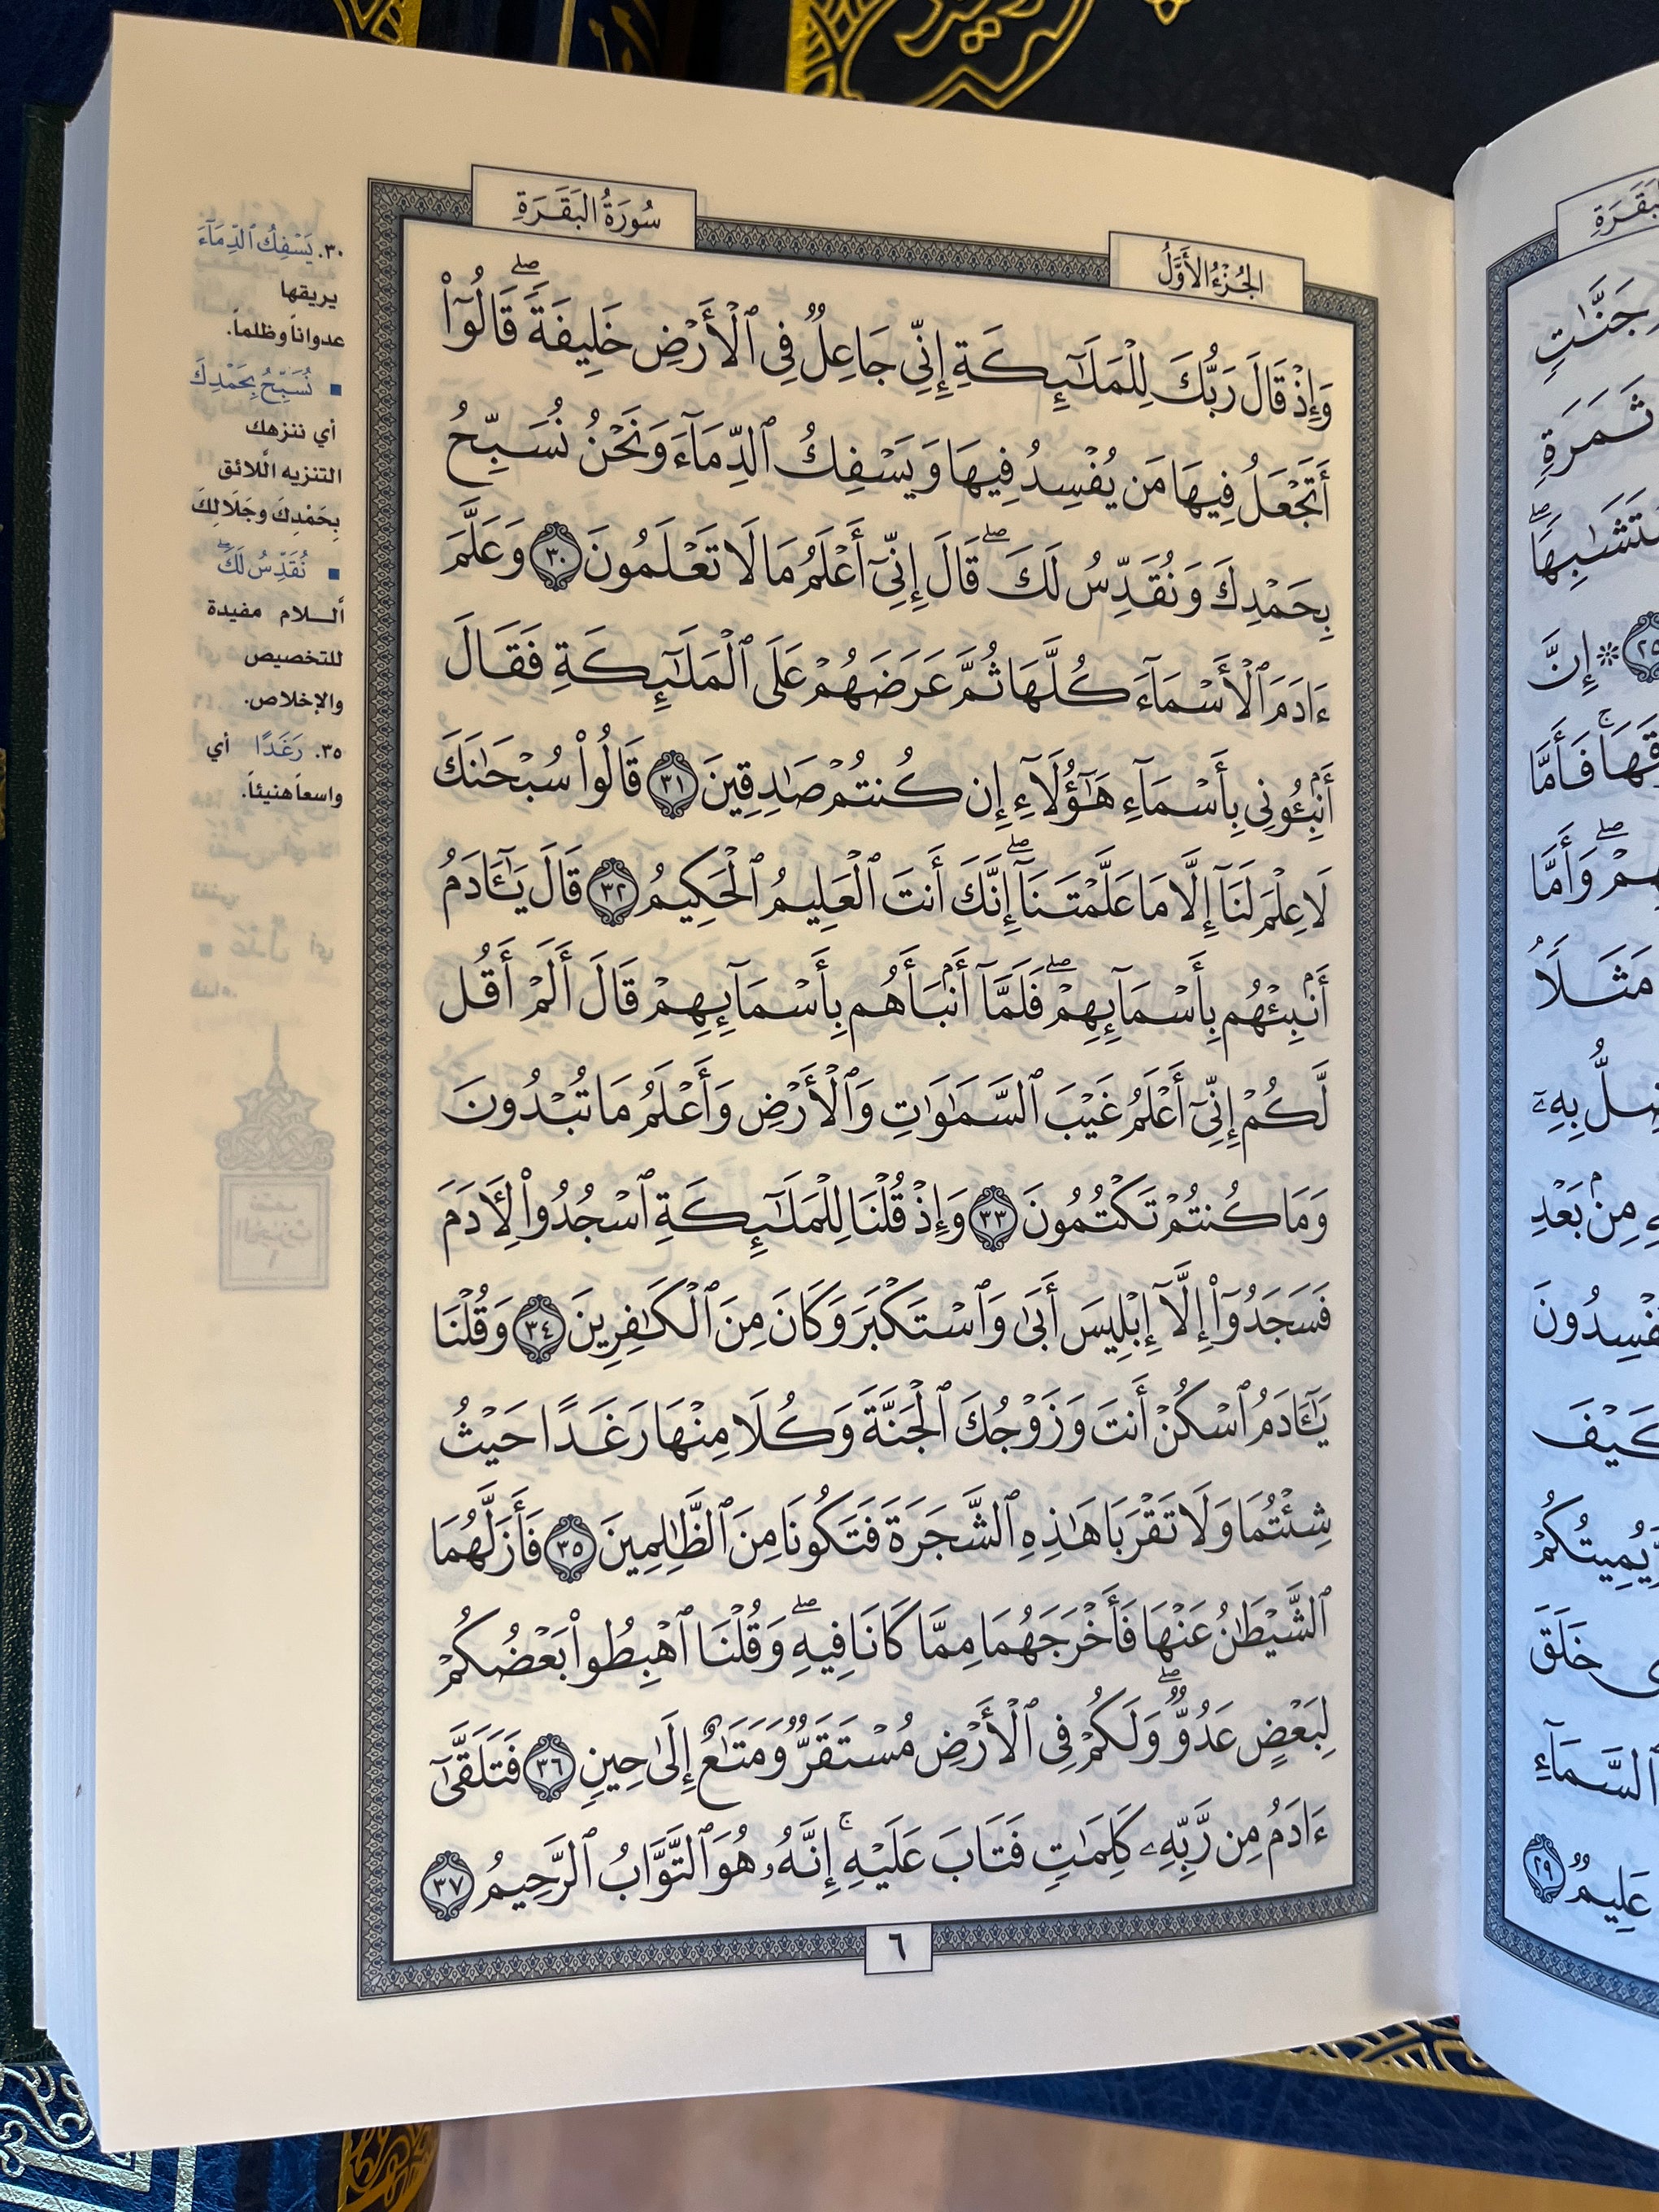 سُورَةُ البَقَرَةِ
الجُزْءُ الأَوَّلُ
وَإِذْ قَالَ رَبُّكَ لِلْمَلَـٰٓئِكَةِ إِنِّى جَاعِلٌ فِى ٱلْأَرْضِ خَلِيفَةً ۖ قَالُوٓا۟
أَتَجْعَلُ فِيهَا مَن يُفْسِدُ فِيهَا وَيَسْفِكُ ٱلدِّمَآءَ وَنَحْنُ نُسَبِّحُ
بِحَمْدِكَ وَنُقَدِّسُ لَكَ ۖ قَالَ إِنِّىٓ أَعْلَمُ مَا لَا تَعْلَمُونَ ٣٠ وَعَلَّمَ
ءَادَمَ ٱلْأَسْمَآءَ كُلَّهَا ثُمَّ عَرَضَهُمْ عَلَى ٱلْمَلَـٰٓئِكَةِ فَقَالَ
أَنۢبِـُٔونِى بِأَسْمَآءِ هَـٰٓؤُلَآءِ إِن كُنتُمْ صَـٰدِقِينَ ٣١ قَالُوا۟ سُبْحَـٰنَكَ
لَا عِلْمَ لَنَآ إِلَّا مَا عَلَّمْتَنَآ ۖ إِنَّكَ أَنتَ ٱلْعَلِيمُ ٱلْحَكِيمُ ٣٢ قَالَ يَـٰٓـَٔادَمُ
أَنۢبِئْهُم بِأَسْمَآئِهِمْ ۖ فَلَمَّآ أَنۢبَأَهُم بِأَسْمَآئِهِمْ قَالَ أَلَمْ أَقُل
لَّكُمْ إِنِّىٓ أَعْلَمُ غَيْبَ ٱلسَّمَـٰوَٰتِ وَٱلْأَرْضِ وَأَعْلَمُ مَا تُبْدُونَ
وَمَا كُنتُمْ تَكْتُمُونَ ٣٣ وَإِذْ قُلْنَا لِلْمَلَـٰٓئِكَةِ ٱسْجُدُوا۟ لِـَٔادَمَ
فَسَجَدُوٓا۟ إِلَّآ إِبْلِيسَ أَبَىٰ وَٱسْتَكْبَرَ وَكَانَ مِنَ ٱلْكَـٰفِرِينَ ٣٤ وَقُلْنَا
يَـٰٓـَٔادَمُ ٱسْكُنْ أَنتَ وَزَوْجُكَ ٱلْجَنَّةَ وَكُلَا مِنْهَا رَغَدًا حَيْثُ
شِئْتُمَا وَلَا تَقْرَبَا هَـٰذِهِ ٱلشَّجَرَةَ فَتَكُونَا مِنَ ٱلظَّـٰلِمِينَ ٣٥ فَأَزَلَّهُمَا
ٱلشَّيْطَـٰنُ عَنْهَا فَأَخْرَجَهُمَا مِمَّا كَانَا فِيهِ ۖ وَقُلْنَا ٱهْبِطُوا۟ بَعْضُكُمْ
لِبَعْضٍ عَدُوٌّ ۖ وَلَكُمْ فِى ٱلْأَرْضِ مُسْتَقَرٌّ وَمَتَـٰعٌ إِلَىٰ حِينٍ ٣٦ فَتَلَقَّىٰٓ
ءَادَمُ مِن رَّبِّهِۦ كَلِمَـٰتٍ فَتَابَ عَلَيْهِ ۚ إِنَّهُۥ هُوَ ٱلتَّوَّابُ ٱلرَّحِيمُ ٣٧
٦
٣٠. يَسْفِكُ ٱلدِّمَآءَ
يريقها
عدواناً وظلماً.
■ نُسَبِّحُ بِحَمْدِكَ
أي ننزهك
التنزيه الّلائق
بِحَمْدِكَ وجَلَالِكَ
■ نُقَدِّسُ لَكَ ۖ
ألـــلام مفيدة
للتخصيص
والإخلاص.
٣٥. رَغَدًا أي
واسعاً هنيئاً.
جَنَّـٰتٍ
ثَمَرَةٍ
٢٥ إِنَّ
فَأَمَّا
وَأَمَّا
مَثَلًا
بِهِۦٓ
مِنۢ بَعْدِ
كَيْفَ
خَلَقَ
ٱلسَّمَآءِ
عَلِيمٌ ٢٩